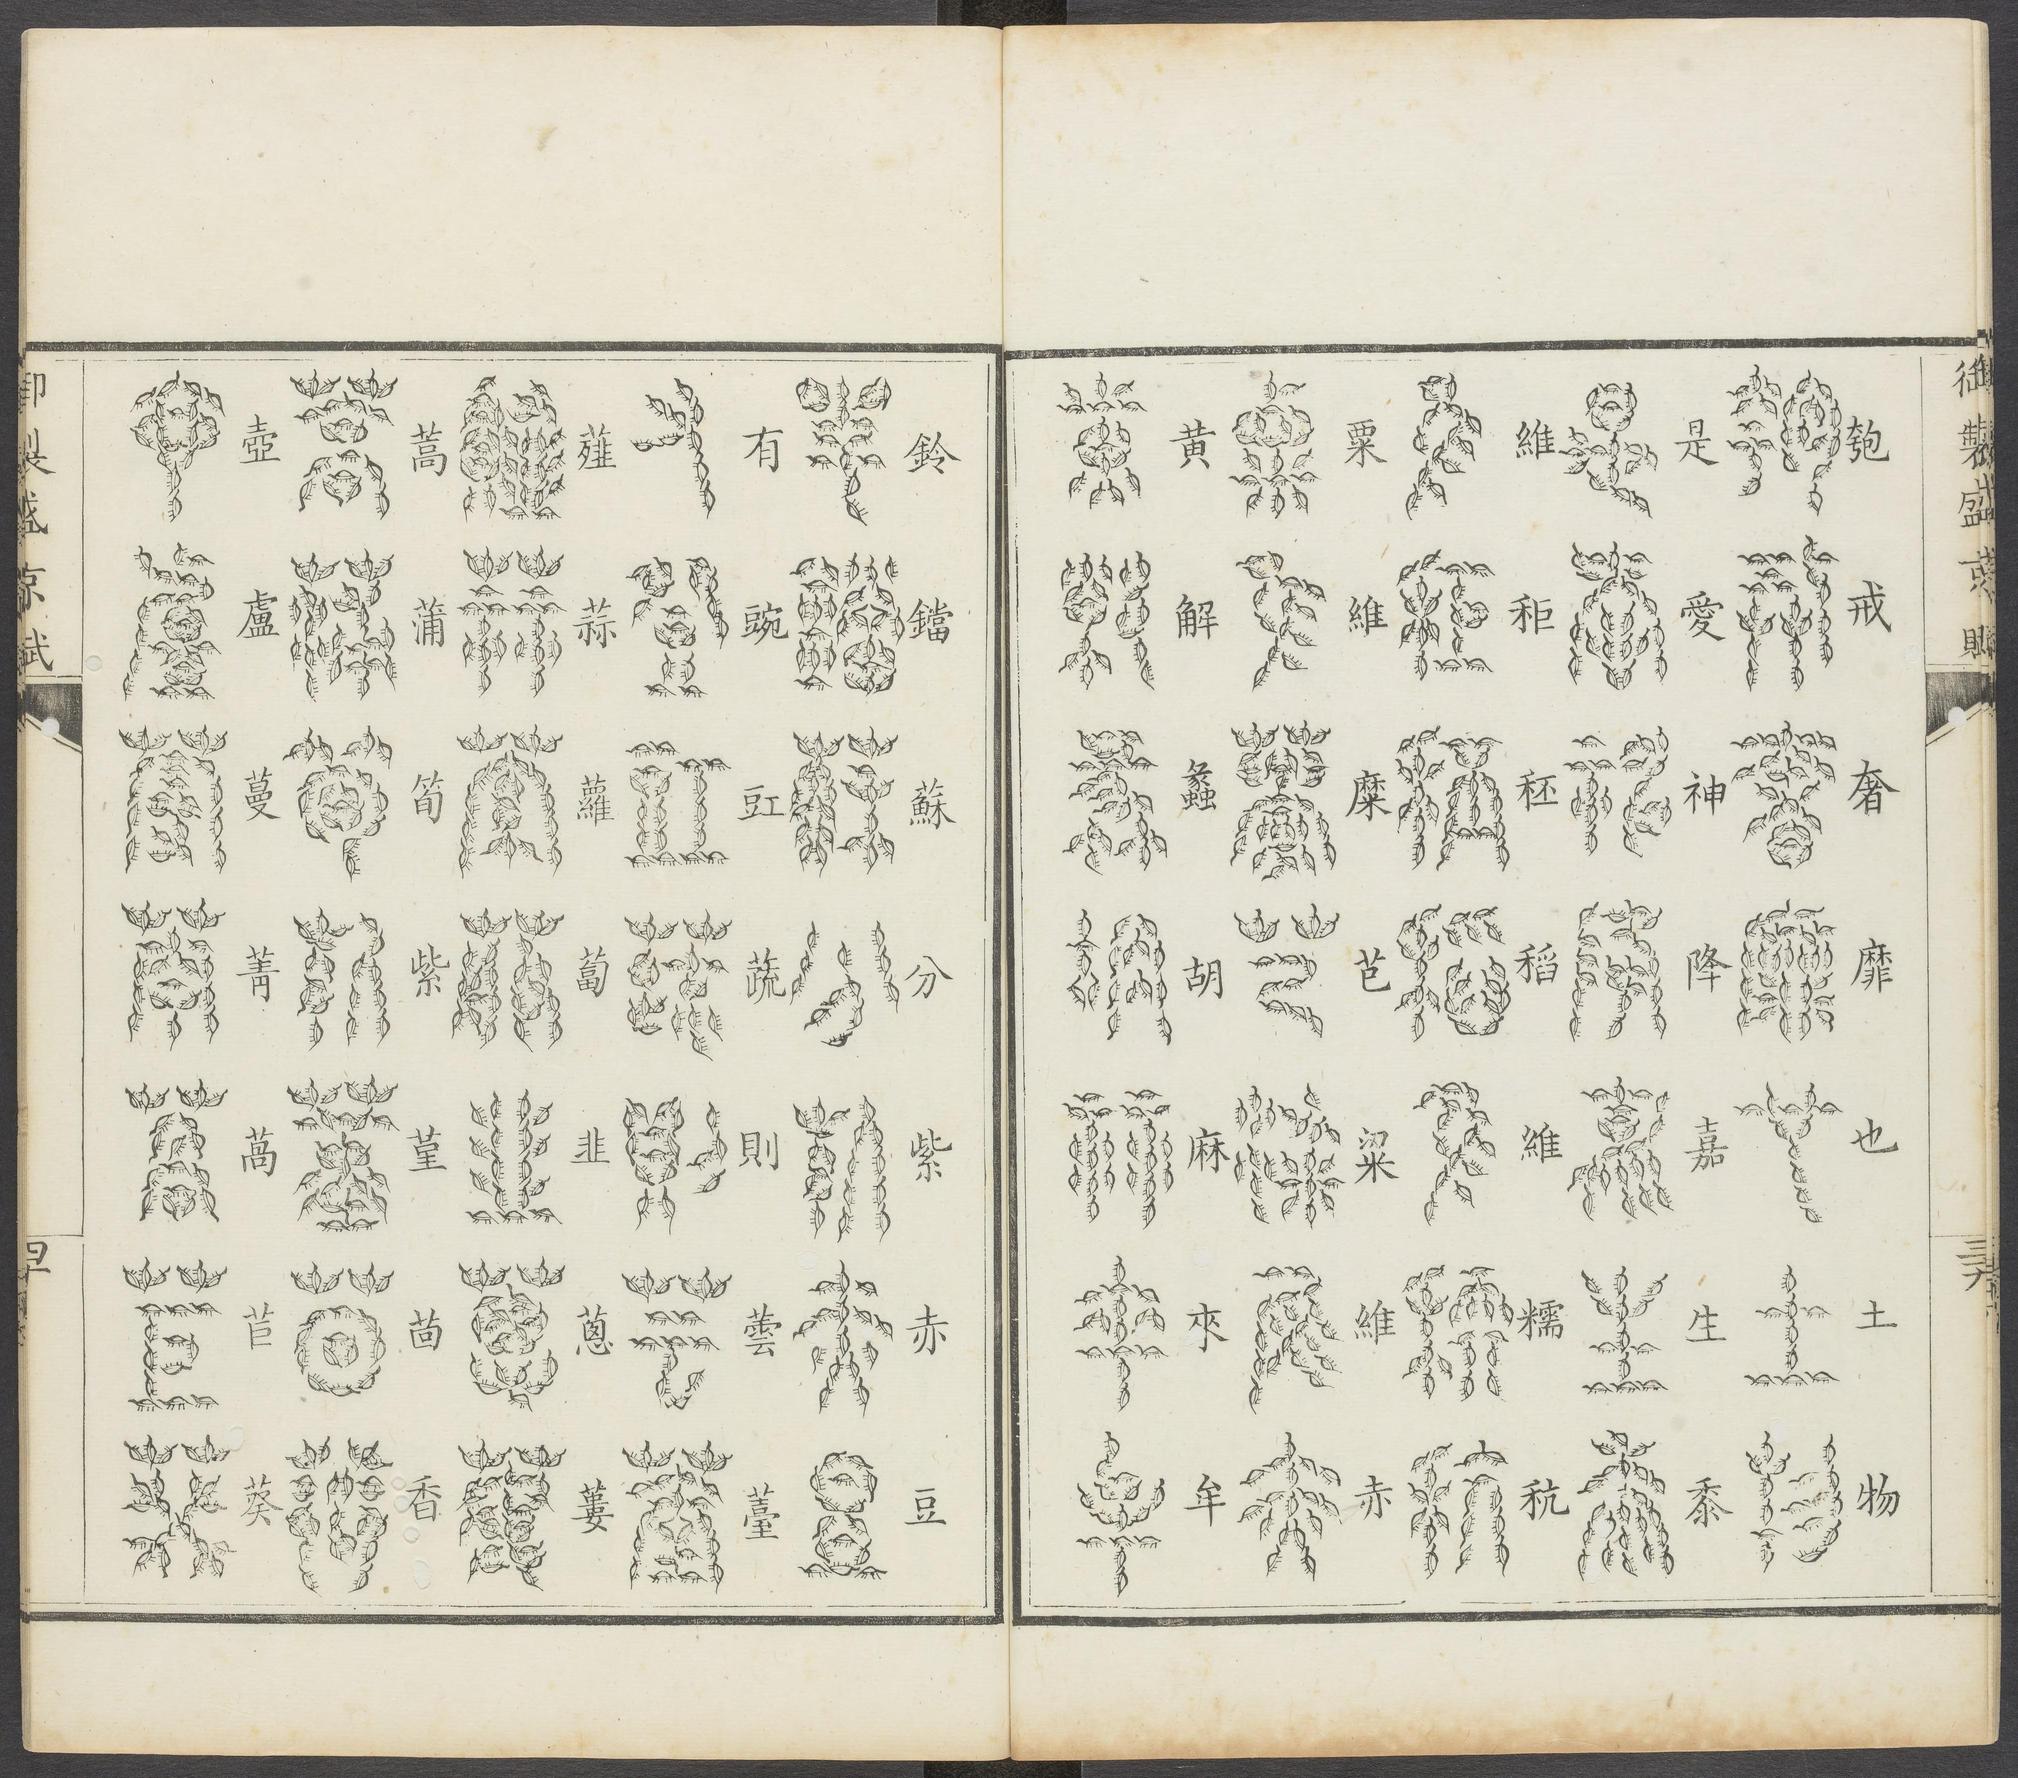 匏戒奢靡也土物
是愛神降嘉生黍
維秬秠稻維糯秔
粟維糜芑粱維赤
黄解蠡胡麻來牟
鈴鐺蘇分紫赤豆
有豌豇蔬則蕓薹
薤蒜蘿蔔韭蔥蔞
蒿蒲筍紫堇茴香
壺盧蔓菁萵苣葵
御製盛京賦